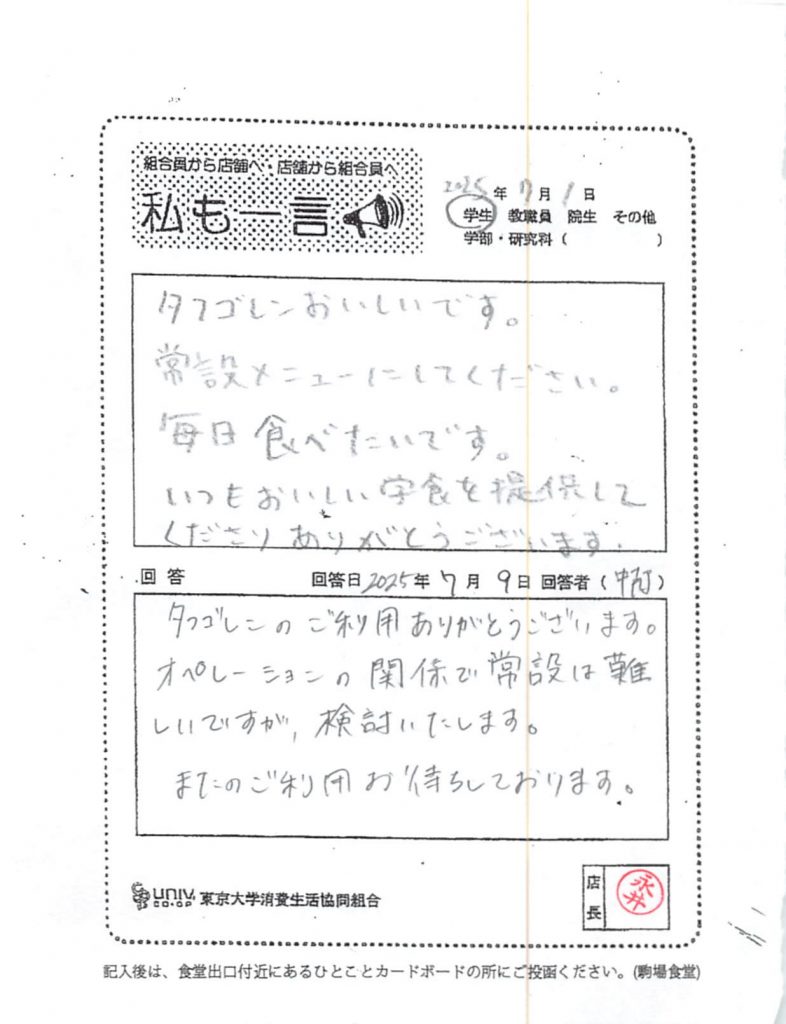 組合員から店舗へ・店舗から組合員へ
私も一言
2025年7月1日
学生 教職員 院生 その他
学部・研究科（ ）
タフゴレンおいしいです。
常設メニューにしてください。
毎日食べたいです。
いつもおいしい学食を提供して
くださりありがとうございます.
回答 回答日2025年7月9日 回答者（ ）
タフゴレンのご利用ありがとうございます。
オペレーションの関係で常設は難
しいですが, 検討いたします。
またのご利用お待ちしております。
univ. CO-OP 東京大学消費生活協同組合
店長 永井
記入後は、食堂出口付近にあるひとことカードボードの所にご投函ください。(駒場食堂)